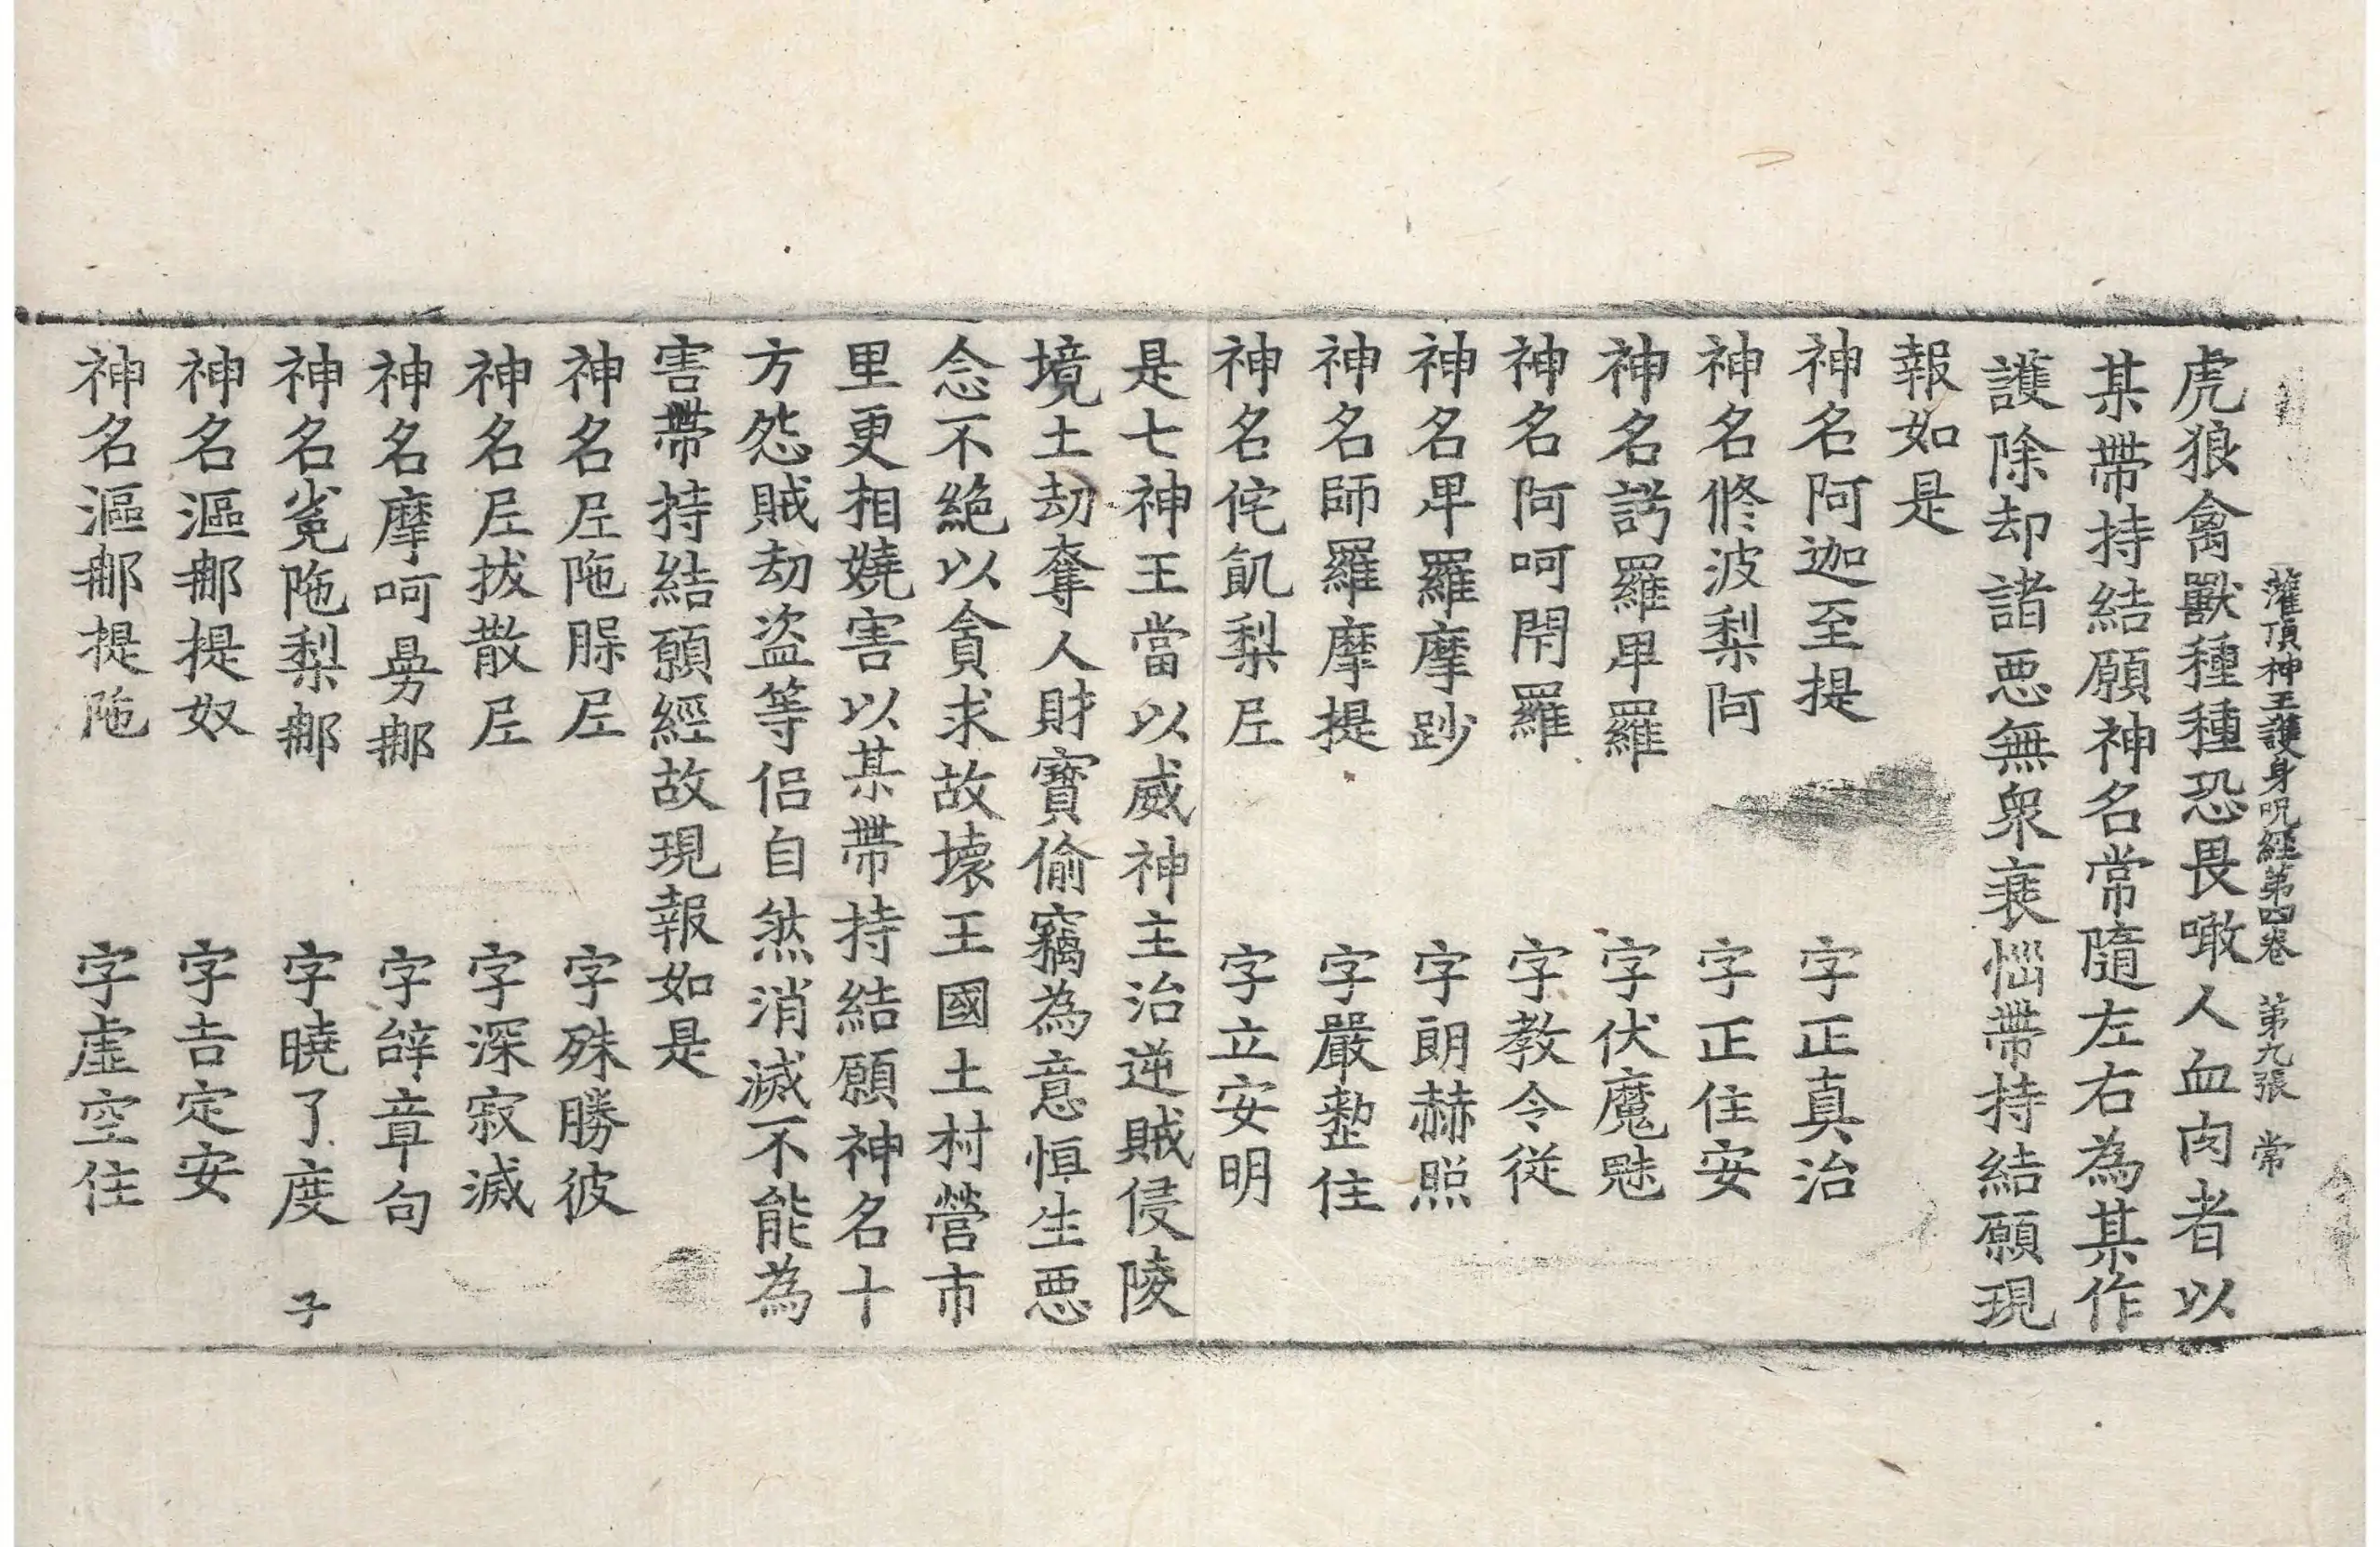 灌頂神王護身呪經第四卷 第九張 常
虎狼禽獸種種恐畏噉人血肉者以
某帶持結願神名常隨左右為某作
護除却諸惡無衆衰惱帶持結願現
報如是
神名阿迦至提 字正真治
神名修波梨阿 字正住安
神名謣羅卑羅 字伏魔魅
神名阿呵閇羅 字教令從
神名卑羅摩䟢 字朗赫照
神名師羅摩提 字嚴整住
神名侘飢梨𡰱 字立安明
是七神王當以威神主治逆賊侵陵
境土劫奪人財寶偷竊為意恒生惡
念不絕以貪求故壞王國土村營市
里更相嬈害以某帶持結願神名十
方怨賊劫盜等侶自然消滅不能為
害帶持結願經故現報如是
神名𡰱陁𦜕𡰱 字殊勝彼
神名𡰱拔散𡰱 字深寂滅
神名摩呵㬅𨚗 字辝章句
神名㲋陁梨𨚗 字曉了度 子
神名漚𨚗提奴 字吉定安
神名漚𨚗提陁 字虛空住